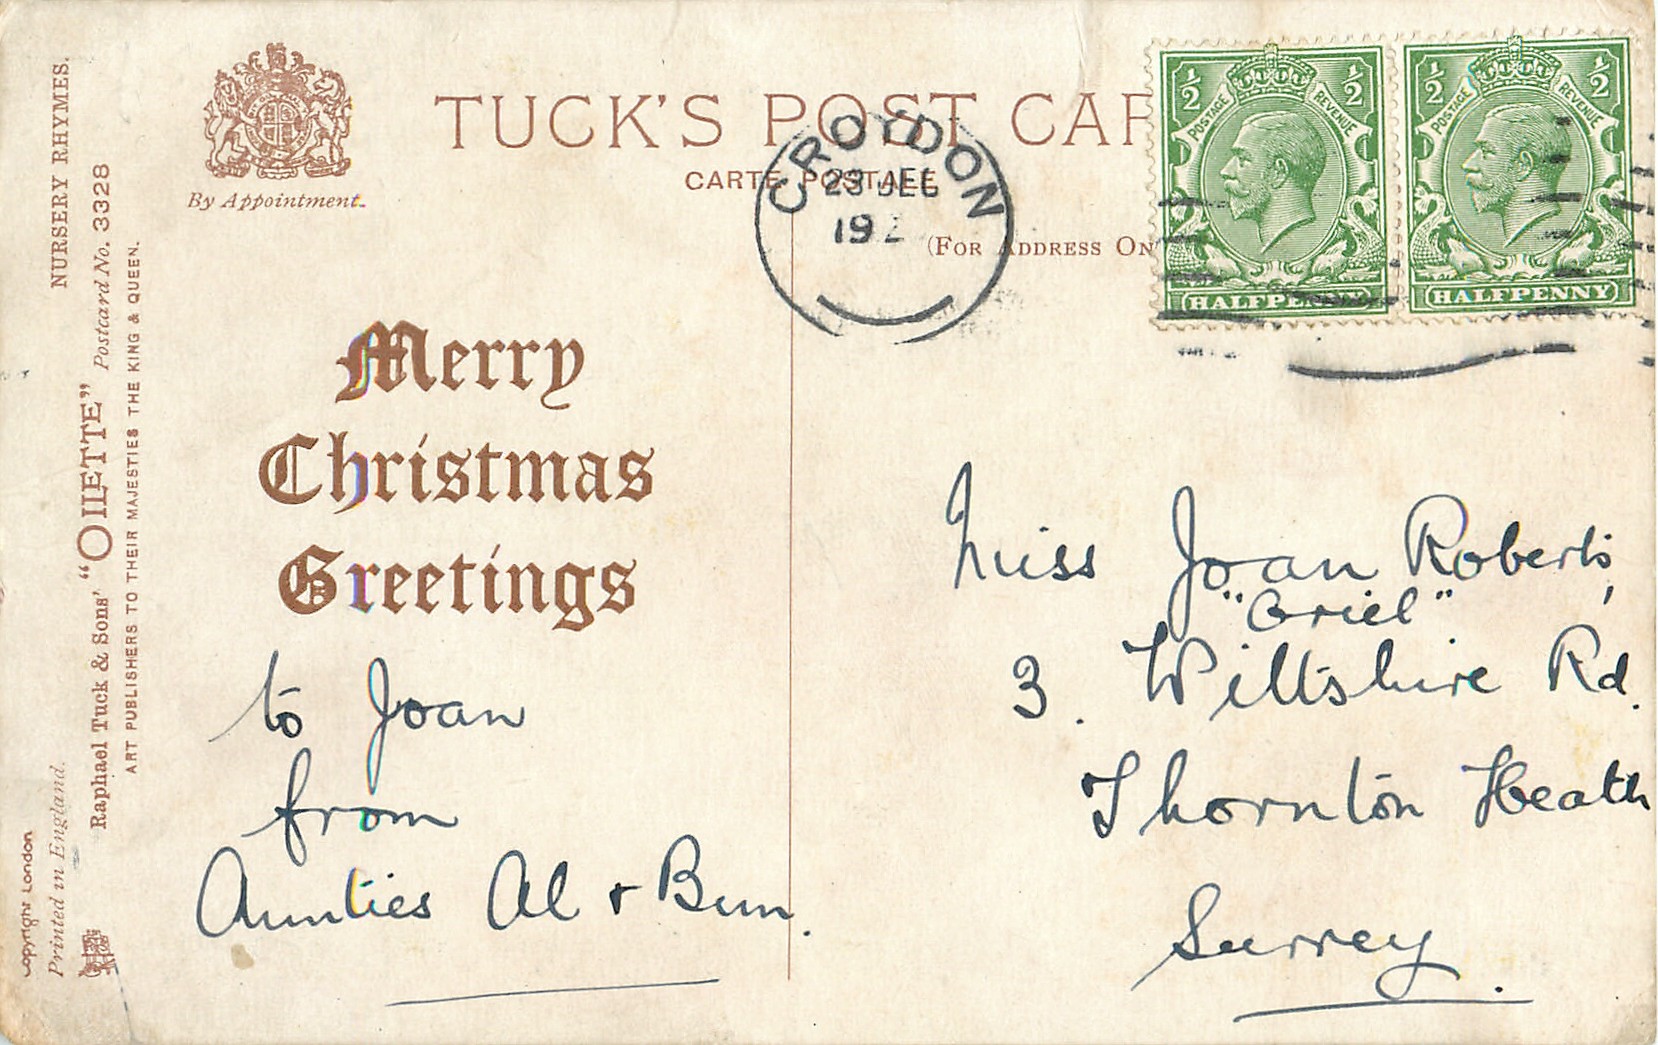 TUCK'S POST CAR
CARTE POSTALE
(FOR ADDRESS ON
By Appointment.
NURSERY RHYMES.
Raphael Tuck & Sons' "OILETTE" Postcard No. 3328
ART PUBLISHERS TO THEIR MAJESTIES THE KING & QUEEN.
Copyright London
Printed in England.
CROYDON
23 DEC
192
½ ½
POSTAGE REVENUE
HALFPENNY
½ ½
POSTAGE REVENUE
HALFPENNY
Merry
Christmas
Greetings
to Joan
from
Aunties Al + Bun.
Miss Joan Roberts,
"Oriel"
3. Wiltshire Rd.
Thornton Heath
Surrey.